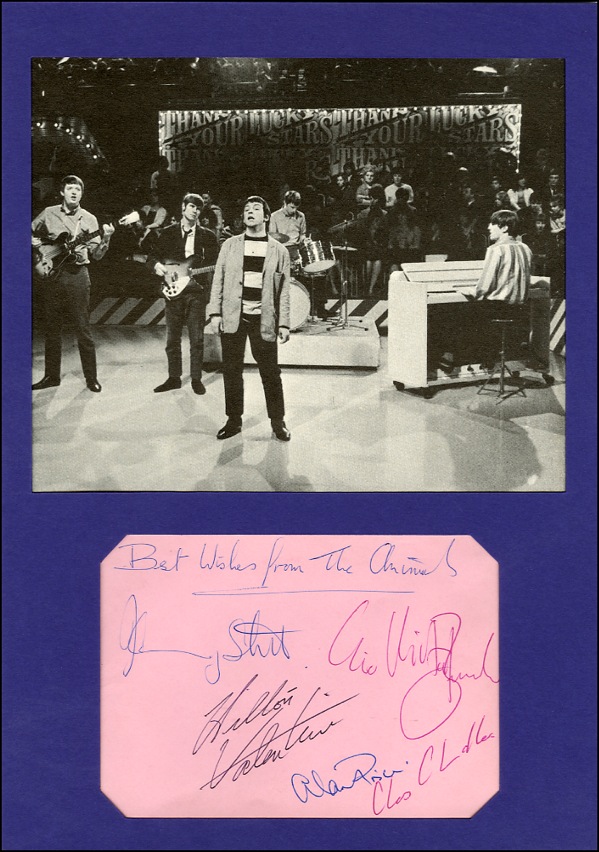 THANK YOUR LUCKY STARS THANK YOUR LUCKY STARS
THANK
Best Wishes from The Animals
Johnny Steel
Eric Burdon
Hilton
Valentine
Alan Price
Chas Chandler